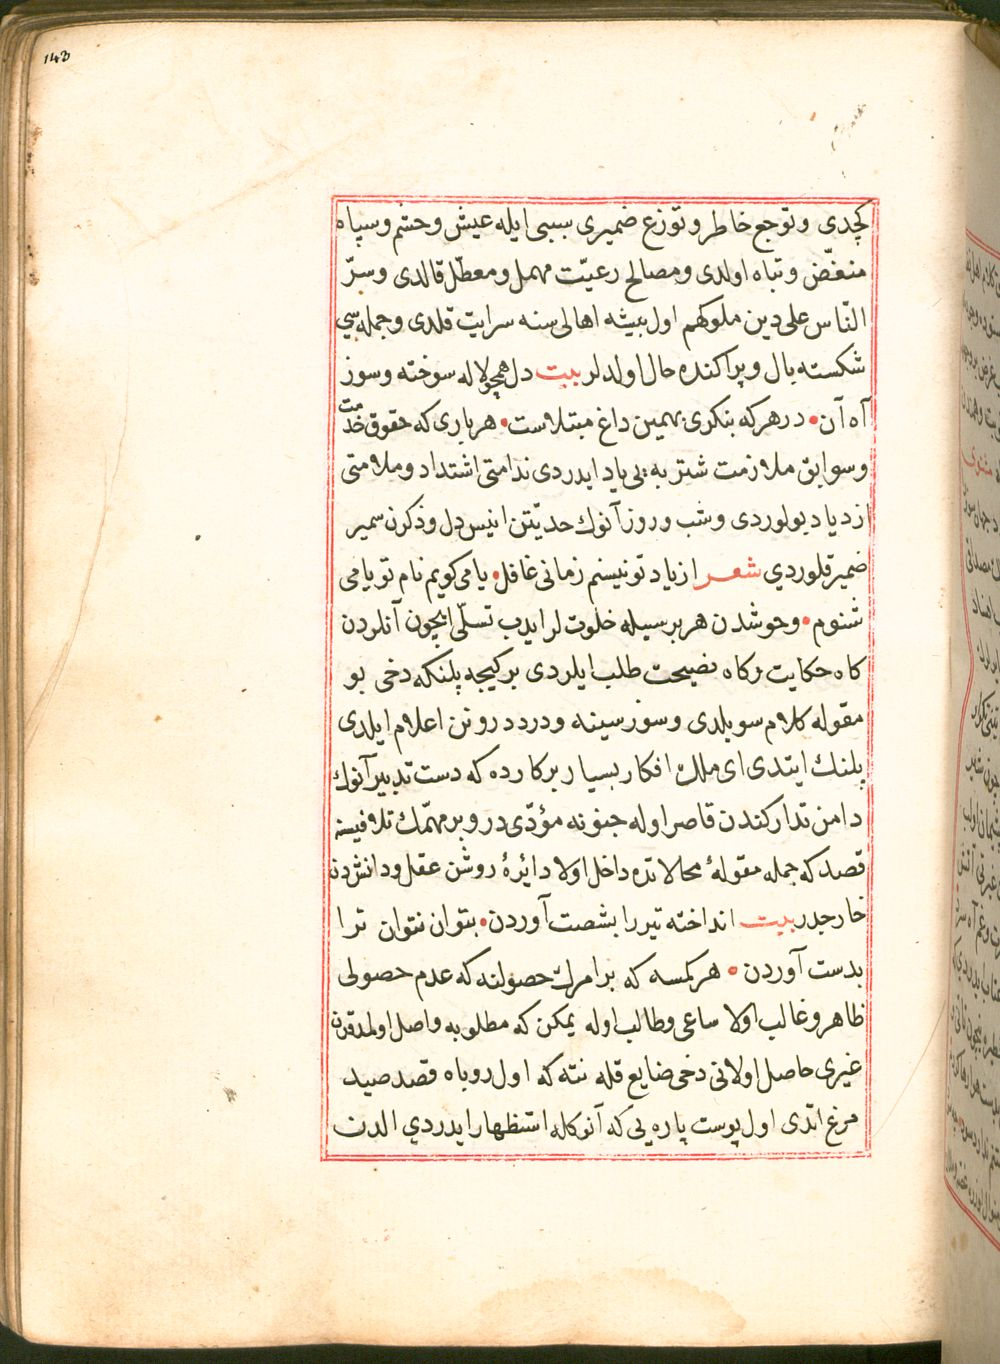 143
کچدی و توجع خاطر و توزع ضمیری سببی ایله عیش و حشم و سپاه
منغّض و تباه اولدی و مصالح رعیّت مهمل و معطّل قالدی و سرّ
النّاس علی دین ملوکهم اول بیشه اهالیسنه سرایت قلدی و جمله سی
شکسته بال و پراکنده حال اولدلر بیت دل همچو لاله سوخته و سوز
آه آن • در هر که بنکری بهمین داغ مبتلاست • هر باری که حقوق خدمت
و سوابق ملازمت شتر به یی یاد ایدردی ندامتی اشتداد و ملامتی
ازدیاد بولوردی و شب و روز آنوك حدیثن انیس دل و ذکرن سمیر
ضمیر قلوردی شعر از یاد تو نیستم زمانی غافل • یا می کویم نام تو یا می
شنوم • و حوشدن هر بر سیله خلوت لر ایدب تسلّی ایچون آنلردن
کاه حکایت و کاه نصیحت طلب ایلردی بر کیجه پلنکه دخی بو
مقوله کلام سویلدی و سوز سینه و درد درونن اعلام ایلدی
پلنك ایتدی ای ملك افکار بسیار بر کارده که دست تدبیر آنوك
دامن تدارکندن قاصر اوله جنونه مؤدّی در و بر مهمّك تلافیسنه
قصد که جمله مقولهٔ محالاتده داخل اولا دائرهٔ روشن عقل و دانشدن
خارجدر بیت انداخته تیر را بشصت آوردن • بتوان نتوان ترا
بدست آوردن • هر کمسه که بر امرك حصولنه که عدم حصولی
ظاهر و غالب اولا ساعی و طالب اوله یمکن که مطلوبه واصل اولمدقدن
غیری حاصل اولانی دخی ضایع قله نته که اول روباه قصد صید
مرغ اتدی اول پوست پاره یی که آنوکله استظهار ایدردی الدن